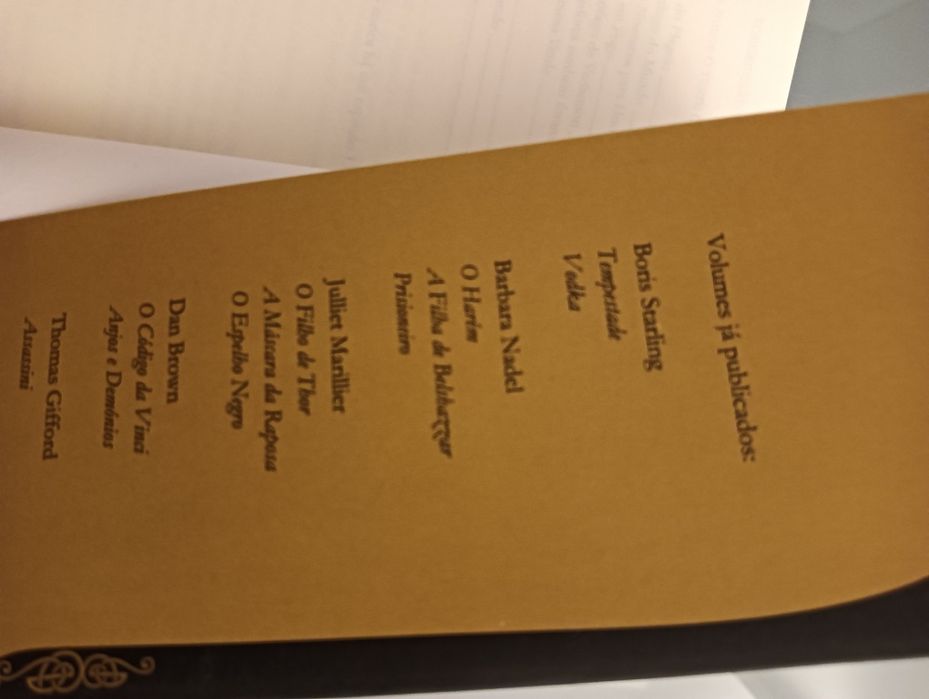 Volumes já publicados:
Boris Starling
Tempestade
Vodka
Barbara Nadel
O Harém
A Filha de Belshazzar
Prisioneiro
Julliet Marillier
O Filho de Thor
A Máscara da Raposa
O Espelho Negro
Dan Brown
O Código da Vinci
Anjos e Demónios
Thomas Gifford
Assassini